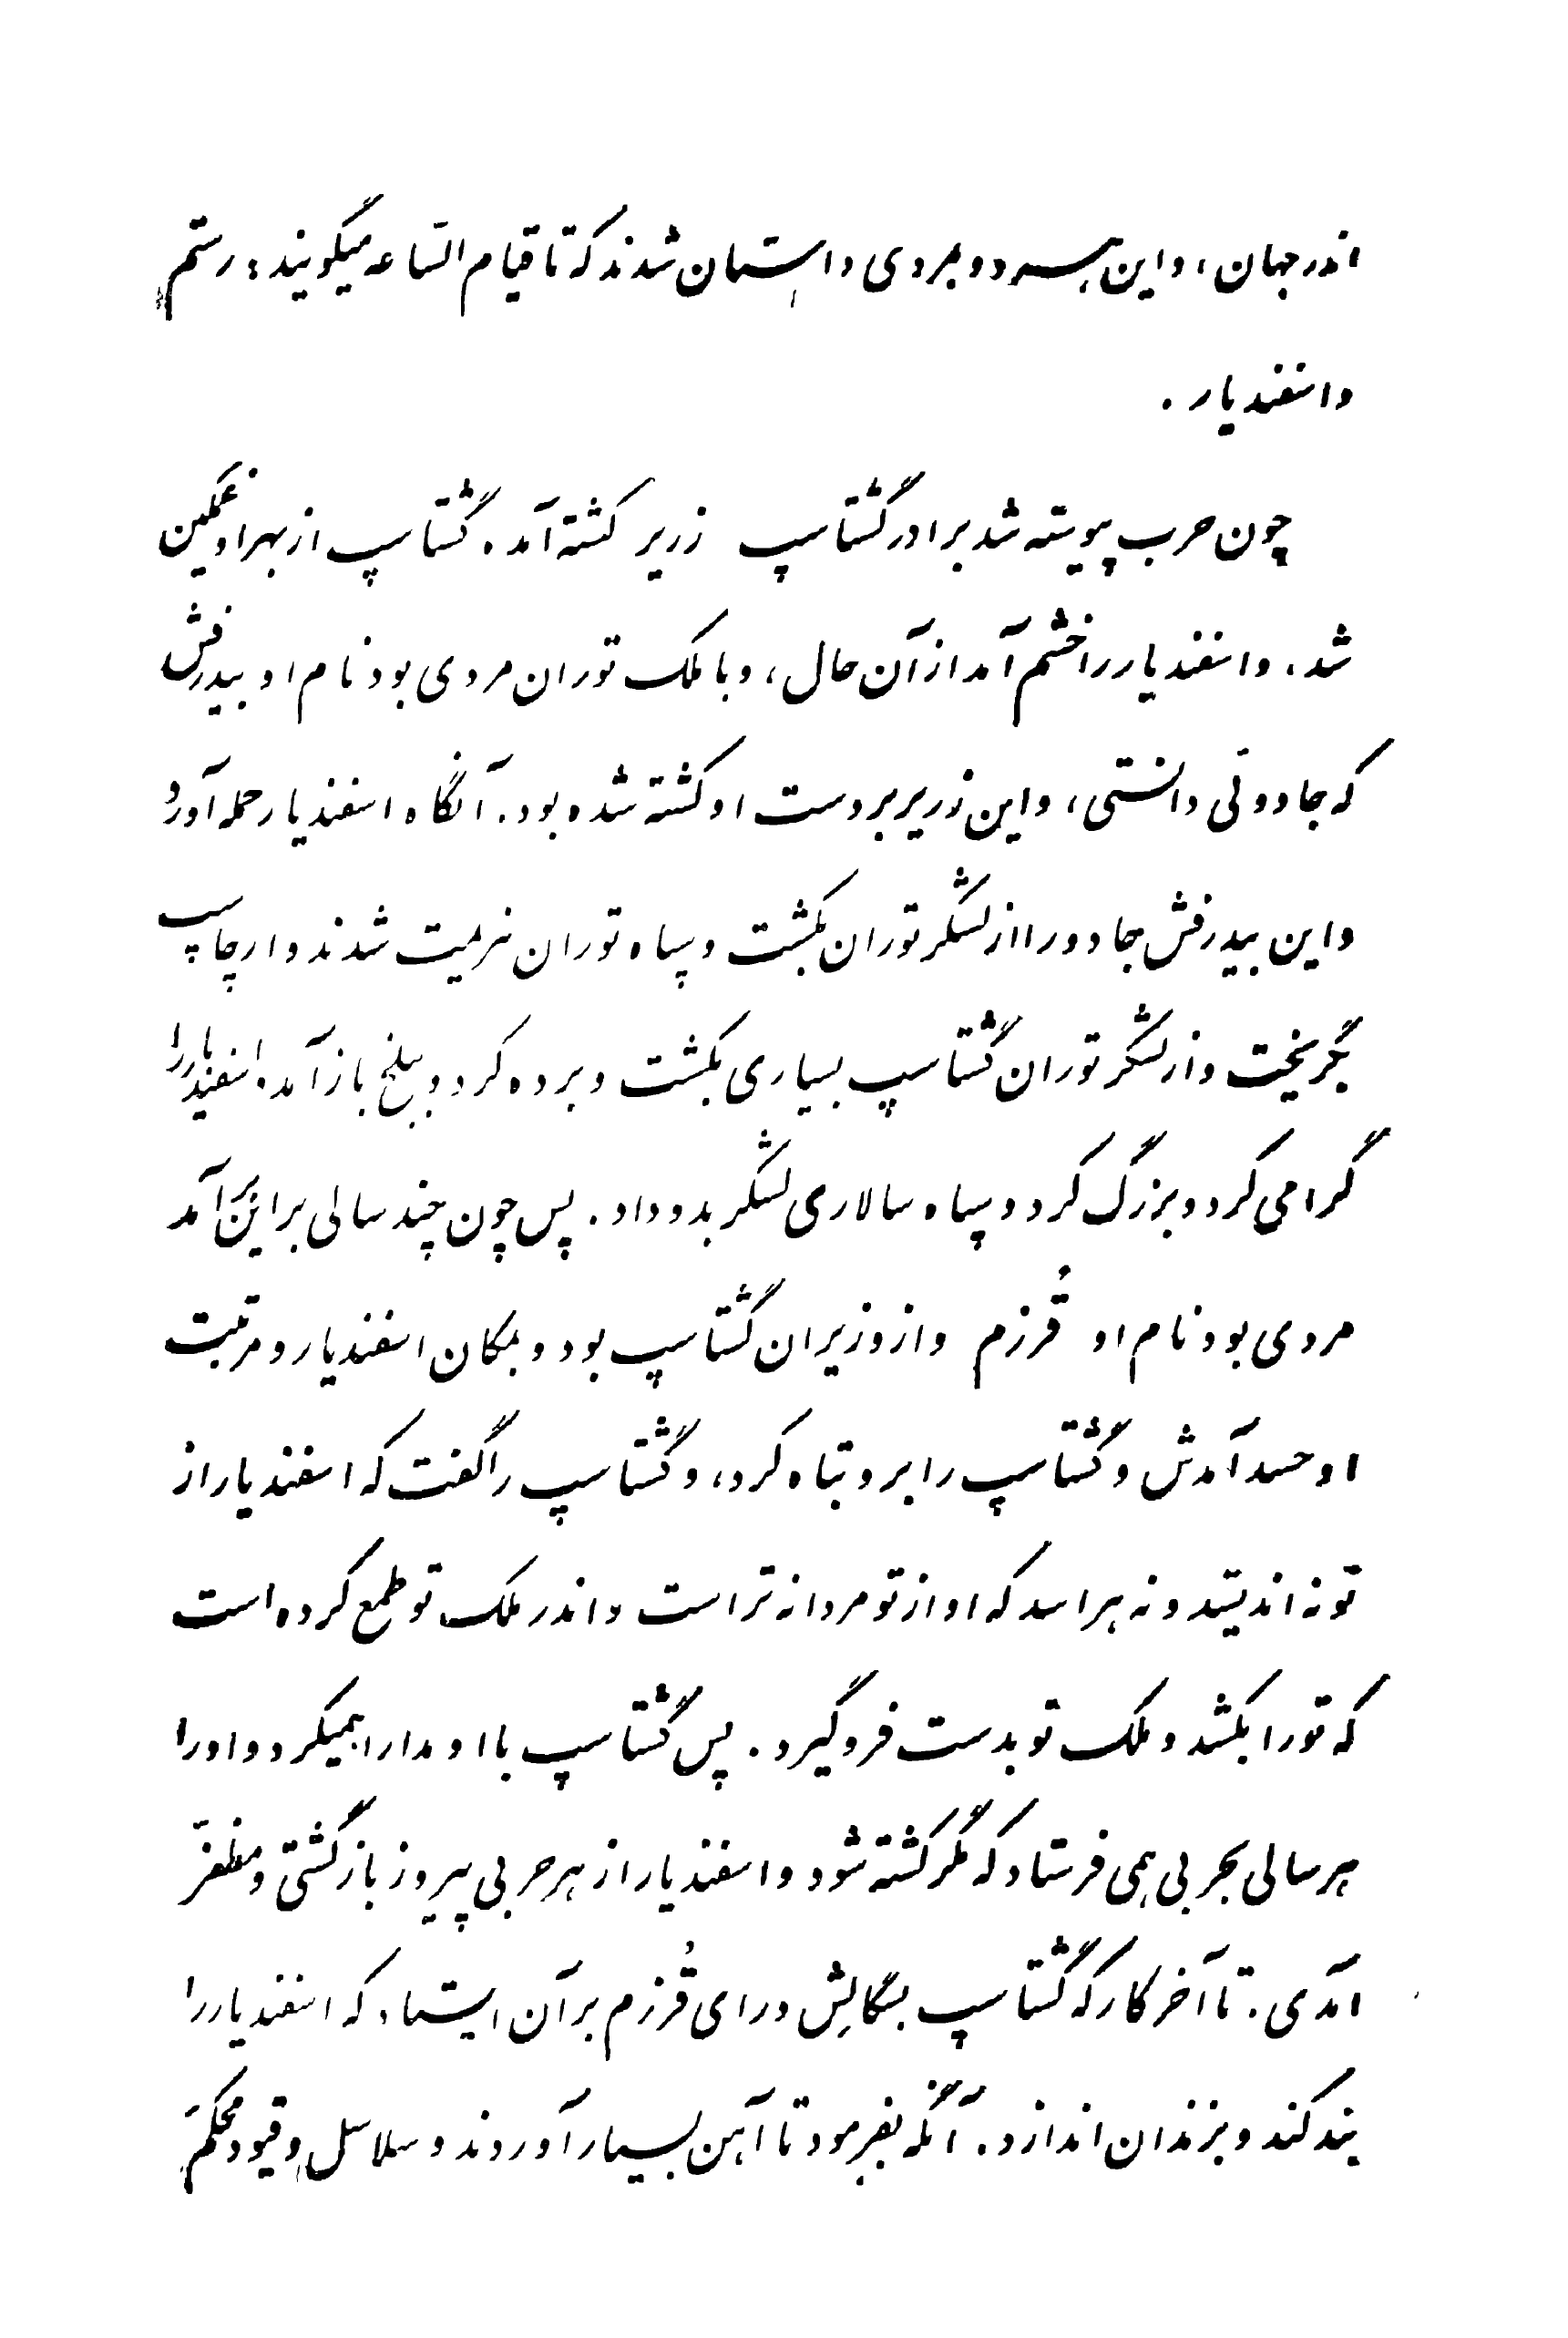 اندر جهان، و این هر دو بمردی داستان شدند که تا قیام السّاعه میگویند: رستم
و اسفندیار.
چون حرب پیوسته شد برادر گشتاسپ زریر کشته آمد. گشتاسپ از بهر او غمگین
شد. و اسفندیار را خشم آمد از آن حال، و با ملک توران مردی بود نام او بیدرفش
که جادوئی دانستی، و این زریر بر دست او کشته شده بود. آنگاه اسفندیار حمله آورد
و این بیدرفش جادو را از لشگر توران بکشت و سپاه توران هزیمت شدند و ارجاسپ
بگریخت و از لشگر توران گشتاسپ بسیاری بکشت و برده کرد و ببلخ باز آمد. اسفندیار را
گرامی کرد و بزرگ کرد و سپاه سالاری لشگر بدو داد. پس چون چند سالی بر این بر آمد
مردی بود نام او قُرزم و از وزیران گشتاسپ بود و بمکان اسفندیار و مرتبت
او حسد آمدش و گشتاسپ را برو تباه کرد، و گشتاسپ را گفت که اسفندیار از
تو نه اندیشد و نه هراسد که او از تو مردانه تر است و اندر ملک تو طمع کرده است
که تو را بکشد و ملک تو بدست فرو گیرد. پس گشتاسپ با او مدارا همیکرد و او را
هر سالی بحربی همی فرستاد که مگر کشته شود و اسفندیار از هر حربی پیروز بازگشتی و مظفّر
آمدی. تا آخر کار که گشتاسپ بسگالش و رای قُرزم بر آن ایستاد که اسفندیار را
بند کند و بزندان اندازد. آنگه بفرمود تا آهن بسیار آوردند و سلاسل و قیود محکم